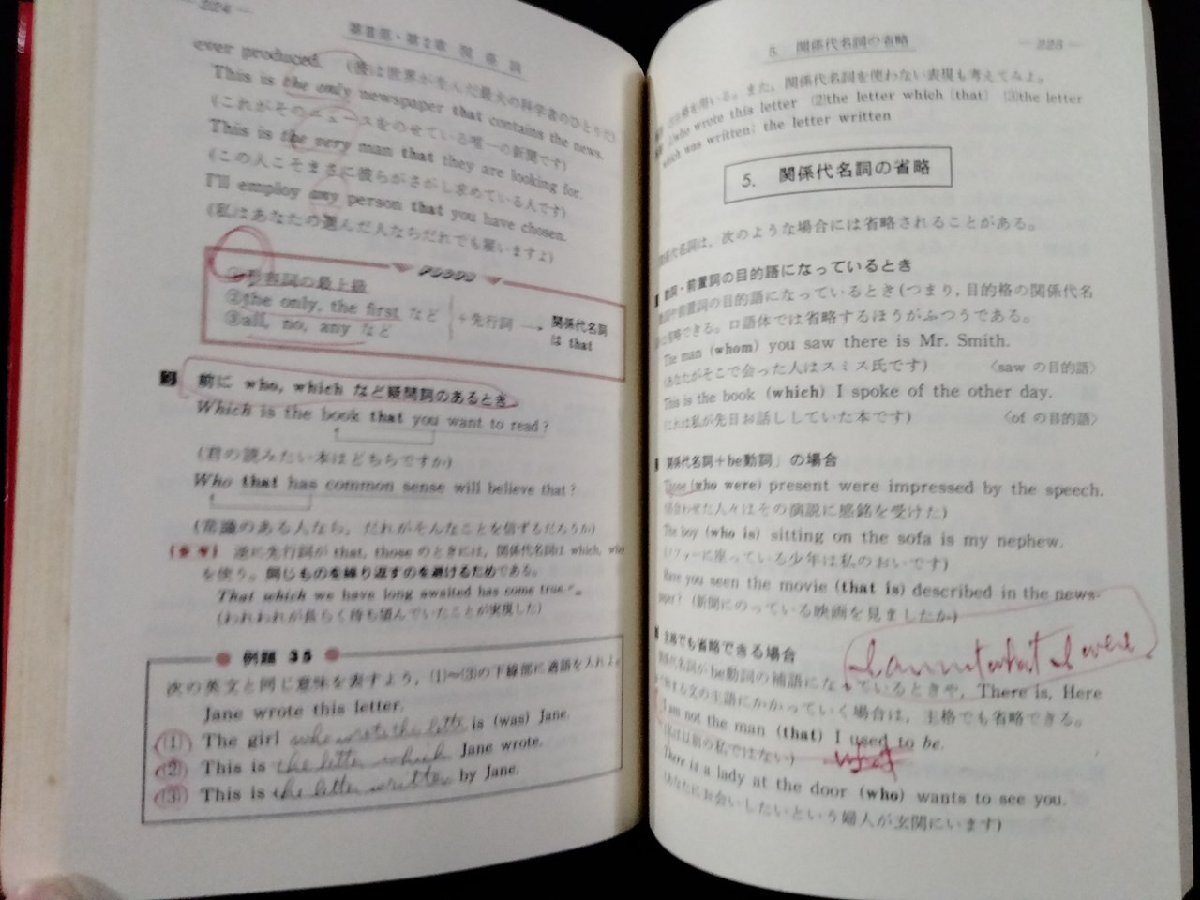 — 224 —
第Ⅱ部・第2章 関 係 詞
ever produced. (彼は世界が生んだ最大の科学者のひとりだ)
This is the only newspaper that contains the news.
(これがそのニュースをのせている唯一の新聞です)
This is the very man that they are looking for.
(この人こそまさに彼らがさがし求めている人です)
I'll employ any person that you have chosen.
(私はあなたの選んだ人ならだれでも雇いますよ)
①形容詞の最上級
②the only, the first など
③all, no, any など
+先行詞 → 関係代名詞
は that
前に who, which など疑問詞のあるとき
Which is the book that you want to read?
(君の読みたい本はどちらですか)
Who that has common sense will believe that?
(常識のある人なら, だれがそんなことを信ずるだろうか)
逆に先行詞が that, those のときには, 関係代名詞は which, who
を使う。同じものを繰り返すのを避けるためである。
That which we have long awaited has come true.
(われわれが長らく待ち望んでいたことが実現した)
例題 35
次の英文と同じ意味を表すよう, (1)〜(3)の下線部に適語を入れよ。
Jane wrote this letter.
(1) The girl who wrote the letter is (was) Jane.
(2) This is the letter which Jane wrote.
(3) This is the letter written by Jane.
5. 関係代名詞の省略
— 225 —
を用いる。また, 関係代名詞を使わない表現も考えてみよ。
who wrote this letter (2)the letter which (that) (3)the letter
which was written; the letter written
5. 関係代名詞の省略
関係代名詞は, 次のような場合には省略されることがある。
動詞・前置詞の目的語になっているとき
動詞や前置詞の目的語になっているとき(つまり, 目的格の関係代名
に省略できる。口語体では省略するほうがふつうである。
The man (whom) you saw there is Mr. Smith.
(あなたがそこで会った人はスミス氏です) 〈saw の目的語〉
This is the book (which) I spoke of the other day.
(これは私が先日お話ししていた本です) 〈of の目的語〉
関係代名詞+be動詞」の場合
Those (who were) present were impressed by the speech.
合わせた人々はその演説に感銘を受けた)
The boy (who is) sitting on the sofa is my nephew.
(ソファーに座っている少年は私のおいです)
Have you seen the movie (that is) described in the news-
paper? (新聞にのっている映画を見ましたか)
主格でも省略できる場合
I am not what I were
関係代名詞がbe動詞の補語になっているときや, There is, Here
する文の主語にかかっていく場合は, 主格でも省略できる。
I am not the man (that) I used to be.
(私は以前の私ではない)
There is a lady at the door (who) wants to see you.
(あなたにお会いしたいという婦人が玄関にいます)